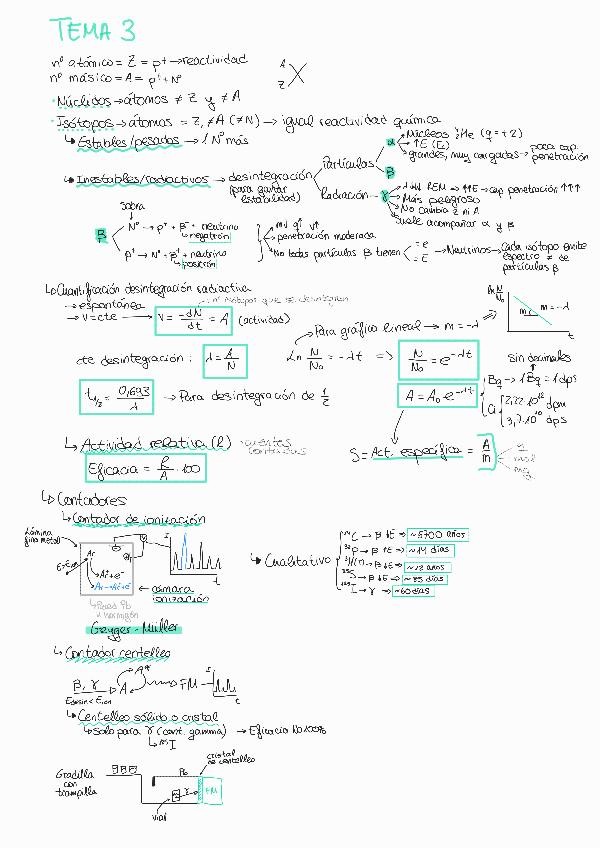 TEMA 3
nº atómico = Z = p⁺ → reactividad
nº másico = A = p⁺ + Nº
A
Z X
· Núclidos → átomos ≠ Z y ≠ A
· Isótopos → átomos = Z, ≠ A (≠ N) → igual reactividad química
↳ Estables/pesados → 1 Nº más
↳ Inestables/radiactivos → desintegración
(para ganar estabilidad)
Partículas
α
Núcleos ⁴₂He (q = +2)
↑E (Ec)
grandes, muy cargadas → poca cap. penetración
β
Radiación
γ
REM → ↑↑E → cap penetración ↑↑↑
Más peligroso
No cambia Z ni A
suele acompañar α y β
Sobra
β
Nº → p⁺ + β⁻ + neutrino
↳ negatrón
p⁺ → Nº + β⁺ + neutrino
↳ positrón
mv q⁻ v↑
penetración moderada
No todas partículas β tienen
= e
= E
→ Neutrinos → Cada isótopo emite espectro ≠ de partículas β
↳ Cuantificación desintegración radiactiva
→ espontánea
→ v = cte → V = -dN/dt = A (actividad)
nº isótopos que se desintegran
cte desintegración : λ = A/N
t1/2 = 0,693/λ → Para desintegración de 1/2
Para gráfico lineal → m = -λ ⇒
Ln N/N₀ = -λt ⇒ N/N₀ = e^-λt
Ln N/N₀
m = -λ
t
A = A₀ e^-λt
Sin decimales
Bq → 1 Bq = 1 dps
Ci
2,22·10¹² dpm
3,7·10¹⁰ dps
↳ Actividad relativa (R) · cuentas contadas
Eficacia = R/A · 100
S = Act. específica = A/m
g
mol
mg
↳ Contadores
↳ Contador de ionización
Lámina fina metal
Ar
Ar⁺ + e⁻
I
t
← cámara ionización
↳ Pared Pb o hormigón
Geyger - Müller
↳ Cualitativo
¹⁴C → β ↓E ⇒ ~5700 años
³²P → β ↑E ⇒ ~14 días
³H → β ↓E ⇒ ~12 años
³⁵S → β ↓E ⇒ ~85 días
¹²⁵I → γ ⇒ ~60 días
↳ Contador centelleo
β, γ
A
A*
FM
I
t
↳ Centelleo sólido o cristal
↳ Solo para γ (cont. gamma) → Eficacia No 100%
↳ ¹²⁵I
Gradilla con trampilla
Pb
cristal de centelleo
γ
FM
vial